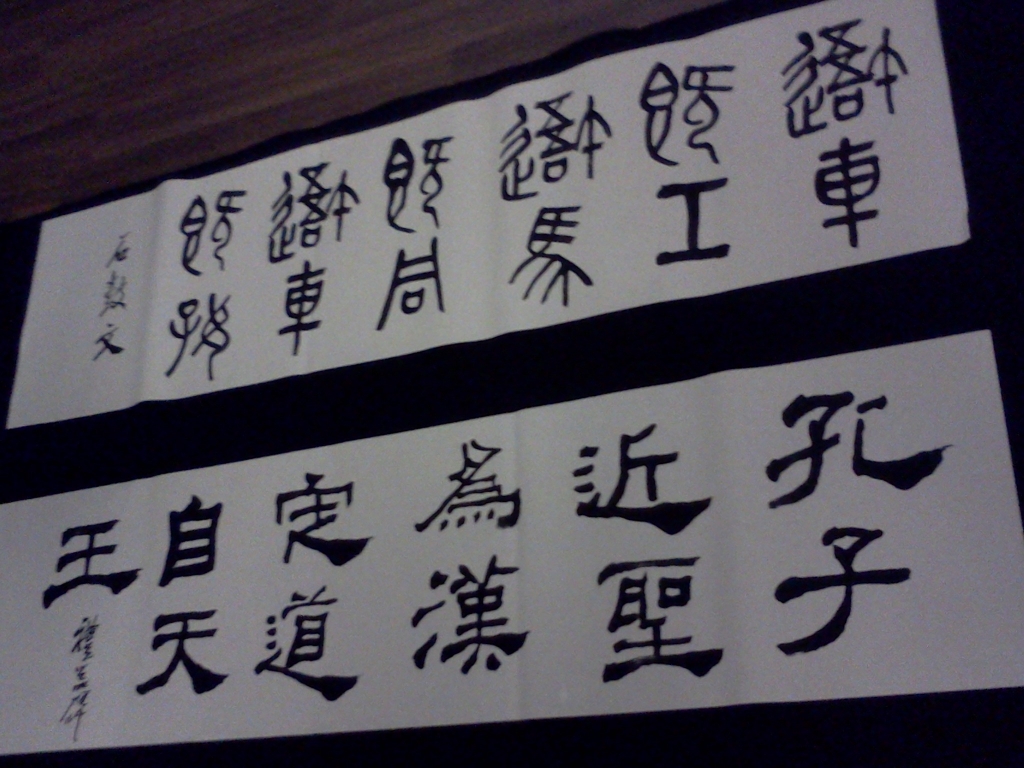 吾車
既工
吾馬
既同
吾車
既好
石鼓文
孔子
近聖
為漢
定道
自天
王
禮器碑